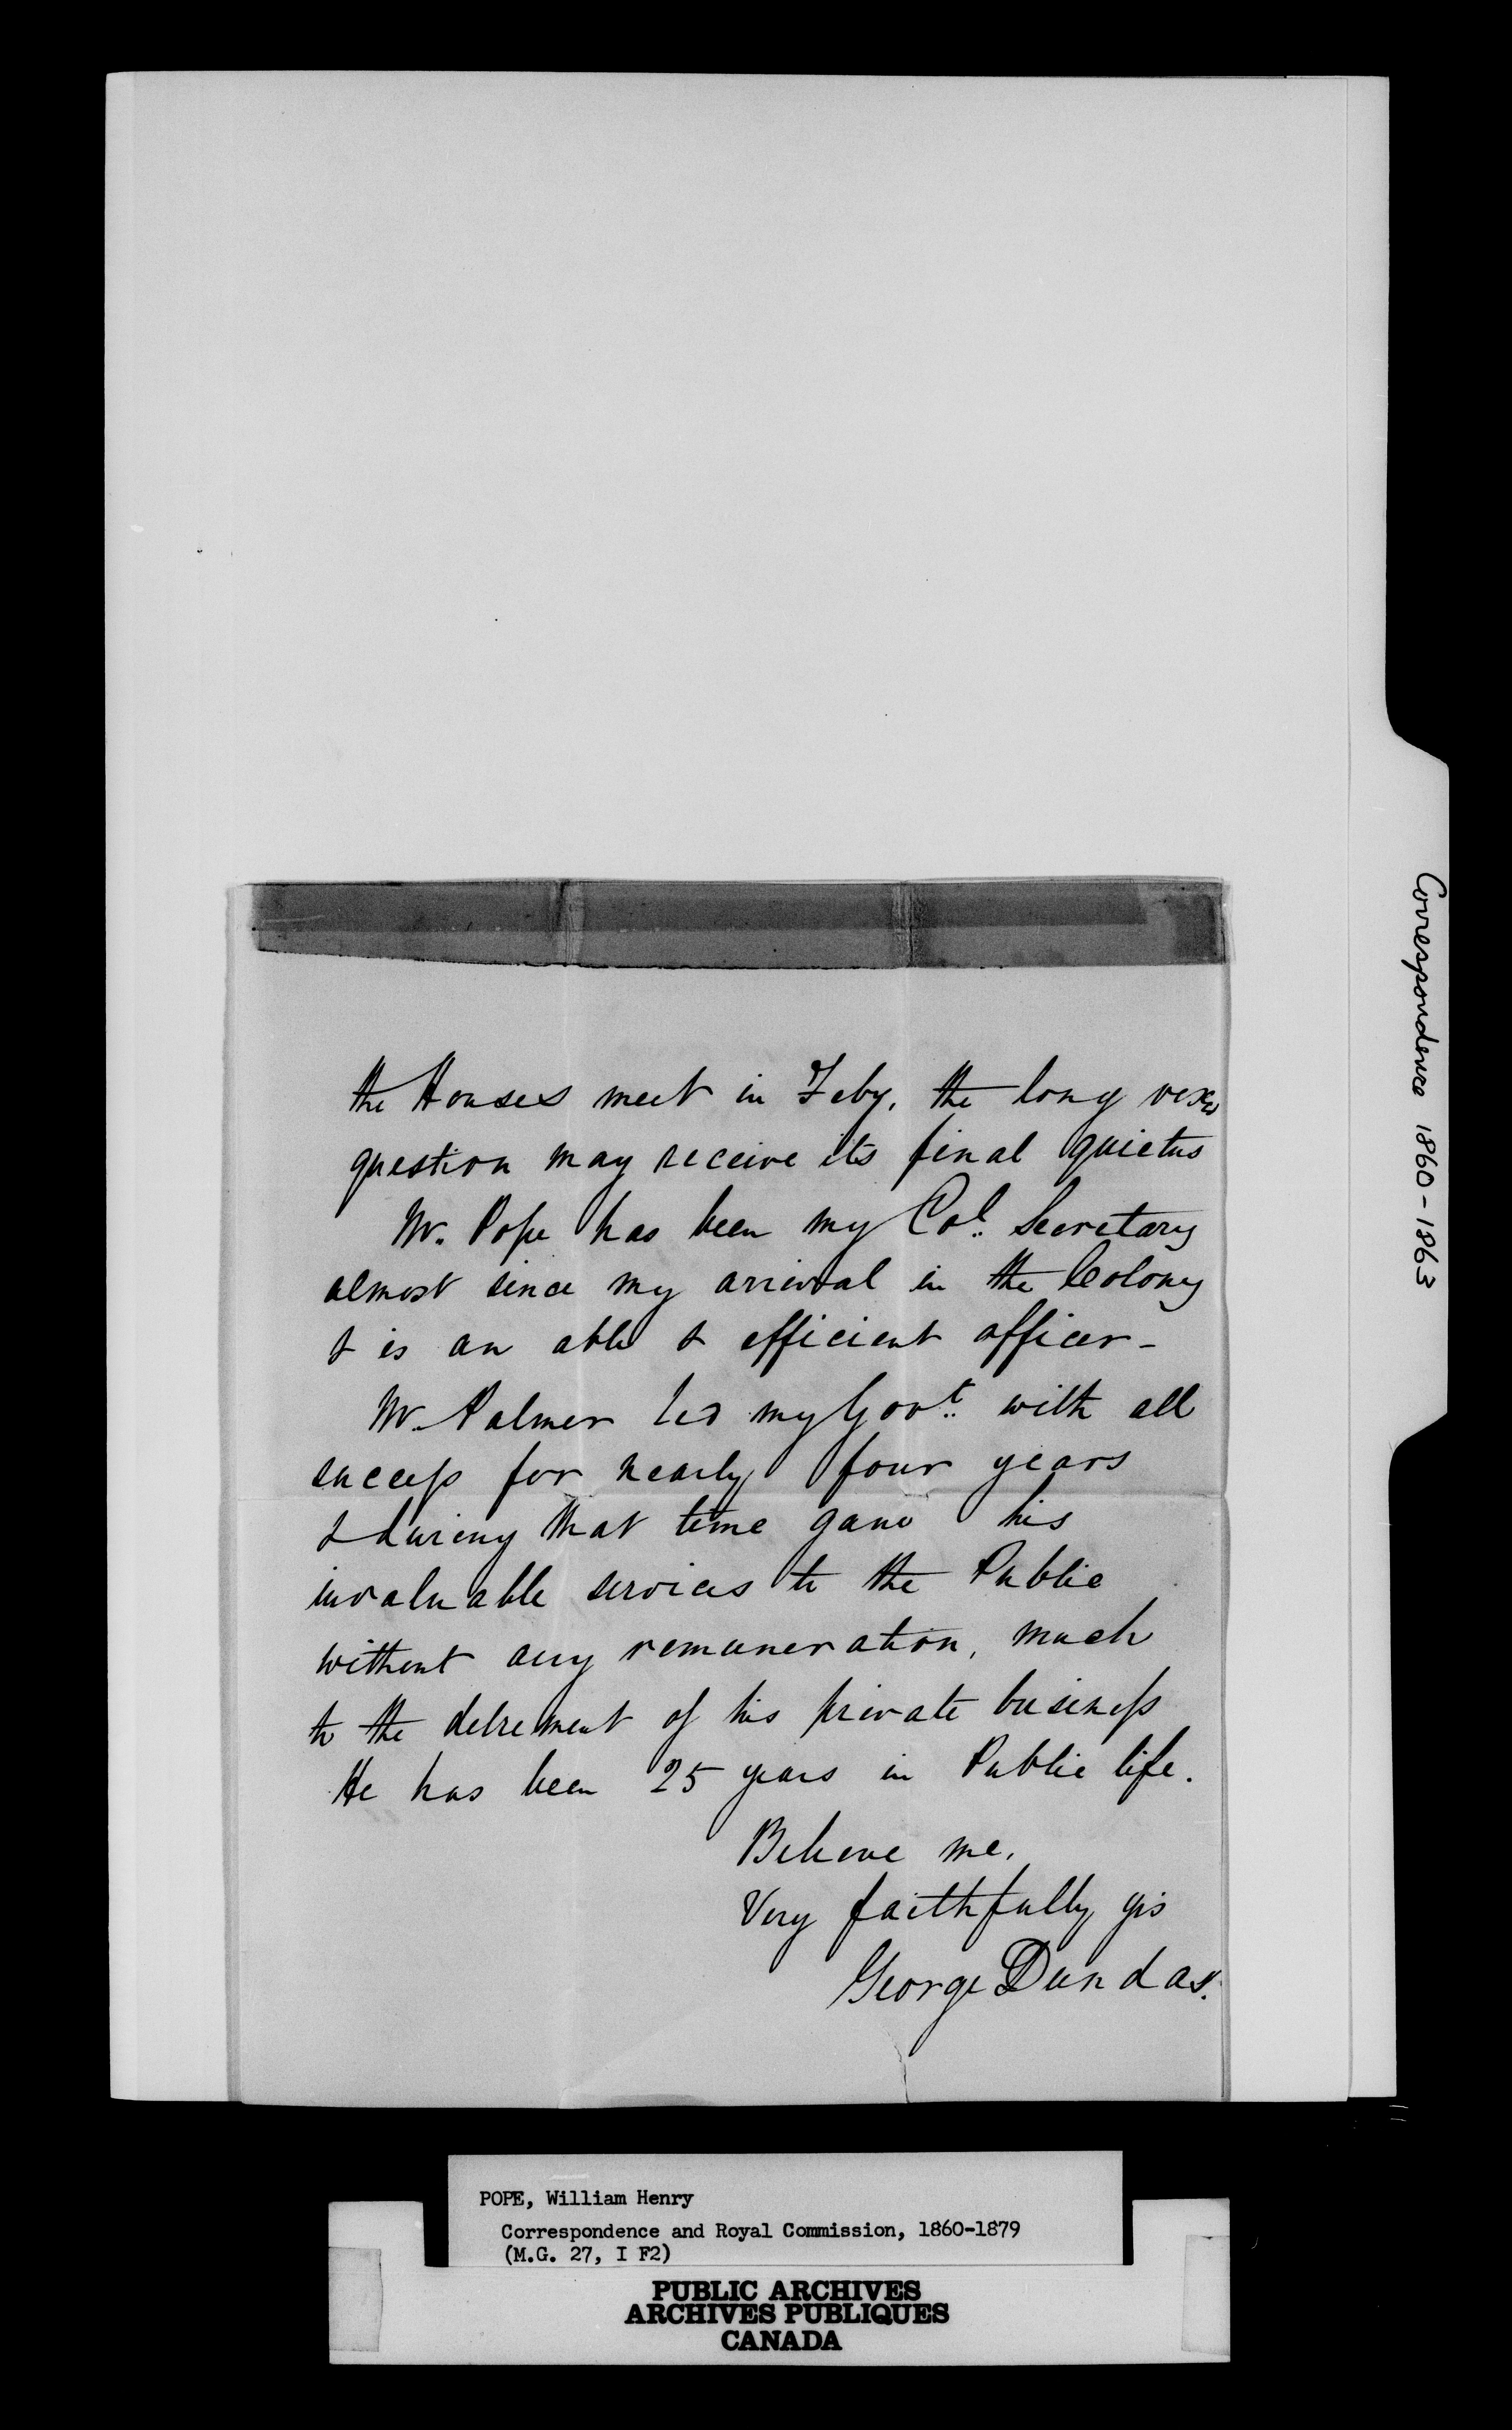 the Houses meet in Feby. the long vexed
question may receive its final quietus
Mr. Pope has been my Col. Secretary
almost since my arrival in the Colony
& is an able & efficient officer -
Mr. Palmer led my Govt. with all
success for nearly four years
& during that time gave his
invaluable services to the Public
without any remuneration, much
to the detrement of his private business
He has been 25 years in Public life.
Believe me,
Very faithfully yrs
George Dundas.
Correspondence 1860-1863
POPE, William Henry
Correspondence and Royal Commission, 1860-1879
(M.G. 27, I F2)
PUBLIC ARCHIVES
ARCHIVES PUBLIQUES
CANADA